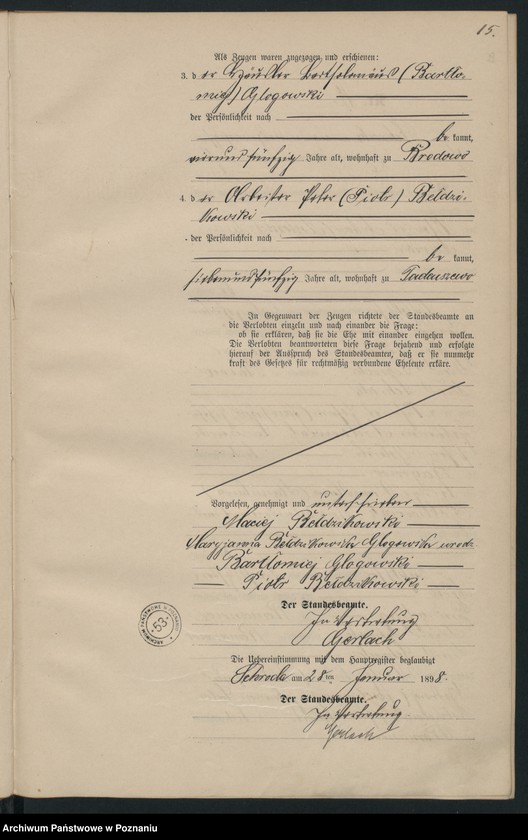 15.
Als Zeugen waren zugezogen und erschienen:
3. der Häusler Bartholomäus (Bartło-
miej) Glogowski
der Persönlichkeit nach
bekannt,
vierundfünfzig Jahre alt, wohnhaft zu Brodowo
4. der Arbeiter Peter (Piotr) Bełdzi-
kowski
der Persönlichkeit nach
bekannt,
siebenundfünfzig Jahre alt, wohnhaft zu Tadeuszewo
In Gegenwart der Zeugen richtete der Standesbeamte an
die Verlobten einzeln und nach einander die Frage:
ob sie erklären, daß sie die Ehe mit einander eingehen wollen.
Die Verlobten beantworteten diese Frage bejahend und erfolgte
hierauf der Ausspruch des Standesbeamten, daß er sie nunmehr
kraft des Gesetzes für rechtmäßig verbundene Eheleute erkläre.
Vorgelesen, genehmigt und unterschrieben
Maciej Bełdzikowski
Maryjanna Bełdzikowska Glogowska urodz
Bartłomiej Glogowski
Piotr Bełdzikowski
Der Standesbeamte.
In Vertretung
Gerlach
Die Uebereinstimmung mit dem Hauptregister beglaubigt
Schroda am 28ten Januar 1898.
Der Standesbeamte.
In Vertretung
Gerlach
ARCHIWUM PAŃSTWOWE W POZNANIU
53
Archiwum Państwowe w Poznaniu